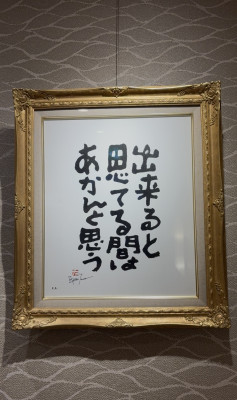 出来ると
思てる間は
あかんと思う